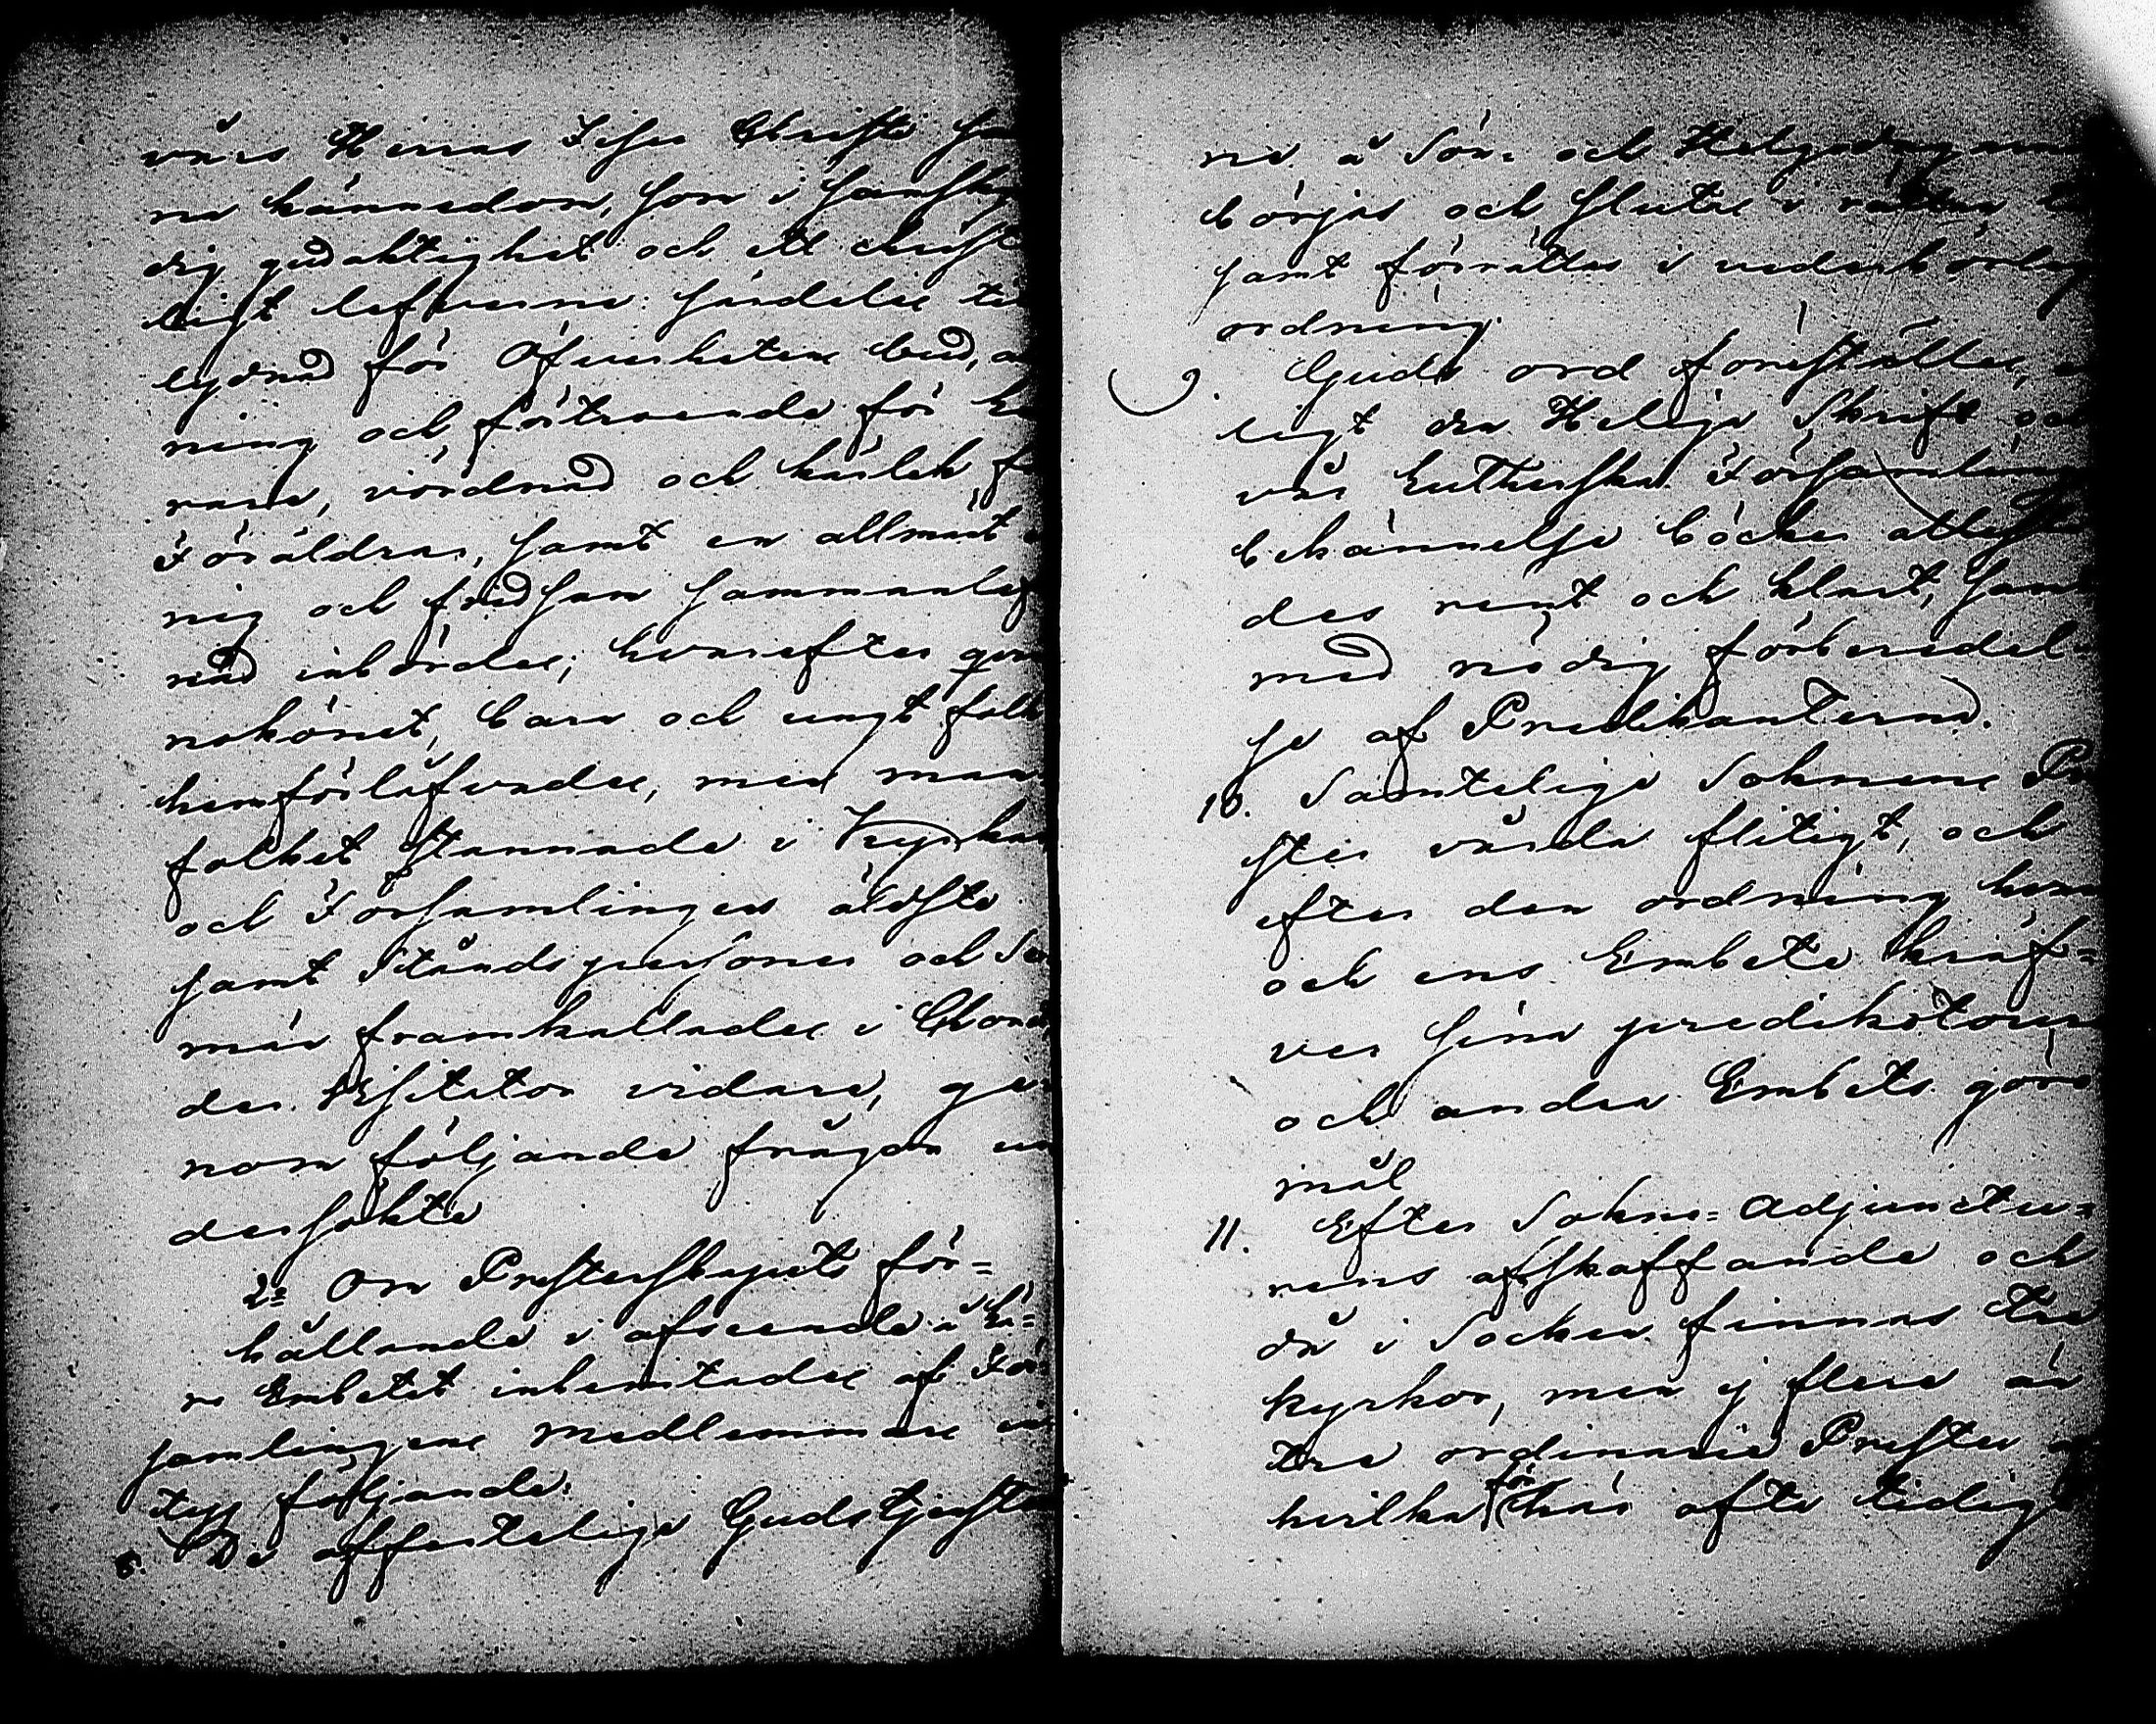 vårs Herras Jesu Christi san
na kännedom, som i sansky
dig gudaktighet och ett christ
ligt lefverne: särdeles til
lydnad för Öfverhetens bud, a
ning och förtroende för Lä
rare, vördnad och kärlek, f
Föräldrar, samt en allmänt e
nig och fridsam sammanlef
nad inbördes; hvarefter qvin
nokönet, barn och ungt folk
hemförlofvades, men man
folket stannade i Kyrkan
och Församlingens äldste
samt Ståndspersoner och Sex
män framkallades i Choret
der Visitator vidare, ge
nom följande frågor un
dersökte
2º Om Presterskapets för=
hållande i afseende å Lä=
ro Embetet inhemtades af För
samlingens Medlemmar en
teg följande:
8. De offenteliga Gudstjenster
na å Sön= och Helgedagarna
börjas och slutas i rättan ti
samt förrättas i vederbörlig
ordning.
9. Guds ord föreställes, en
ligt den Heliga Skrift och
vår Lutherska Församlings
bekännelse böcker alltjem
des rent och klart, samt
med nödig förberedel
se af Predikanterna.
10. Samtelige Soknens Pre
ster vårda flitigt, och
efter den ordning hvar
och ens Embete kräf=
ver sina predikstour
och andra Embets görö
mål
11. Efter Sokne=Adjunctu=
rens afskaffande och
då i Socken finnas tre
kyrkor, men ej flere än
tre ordinarie Prester af
hvilka för här ofta tidig